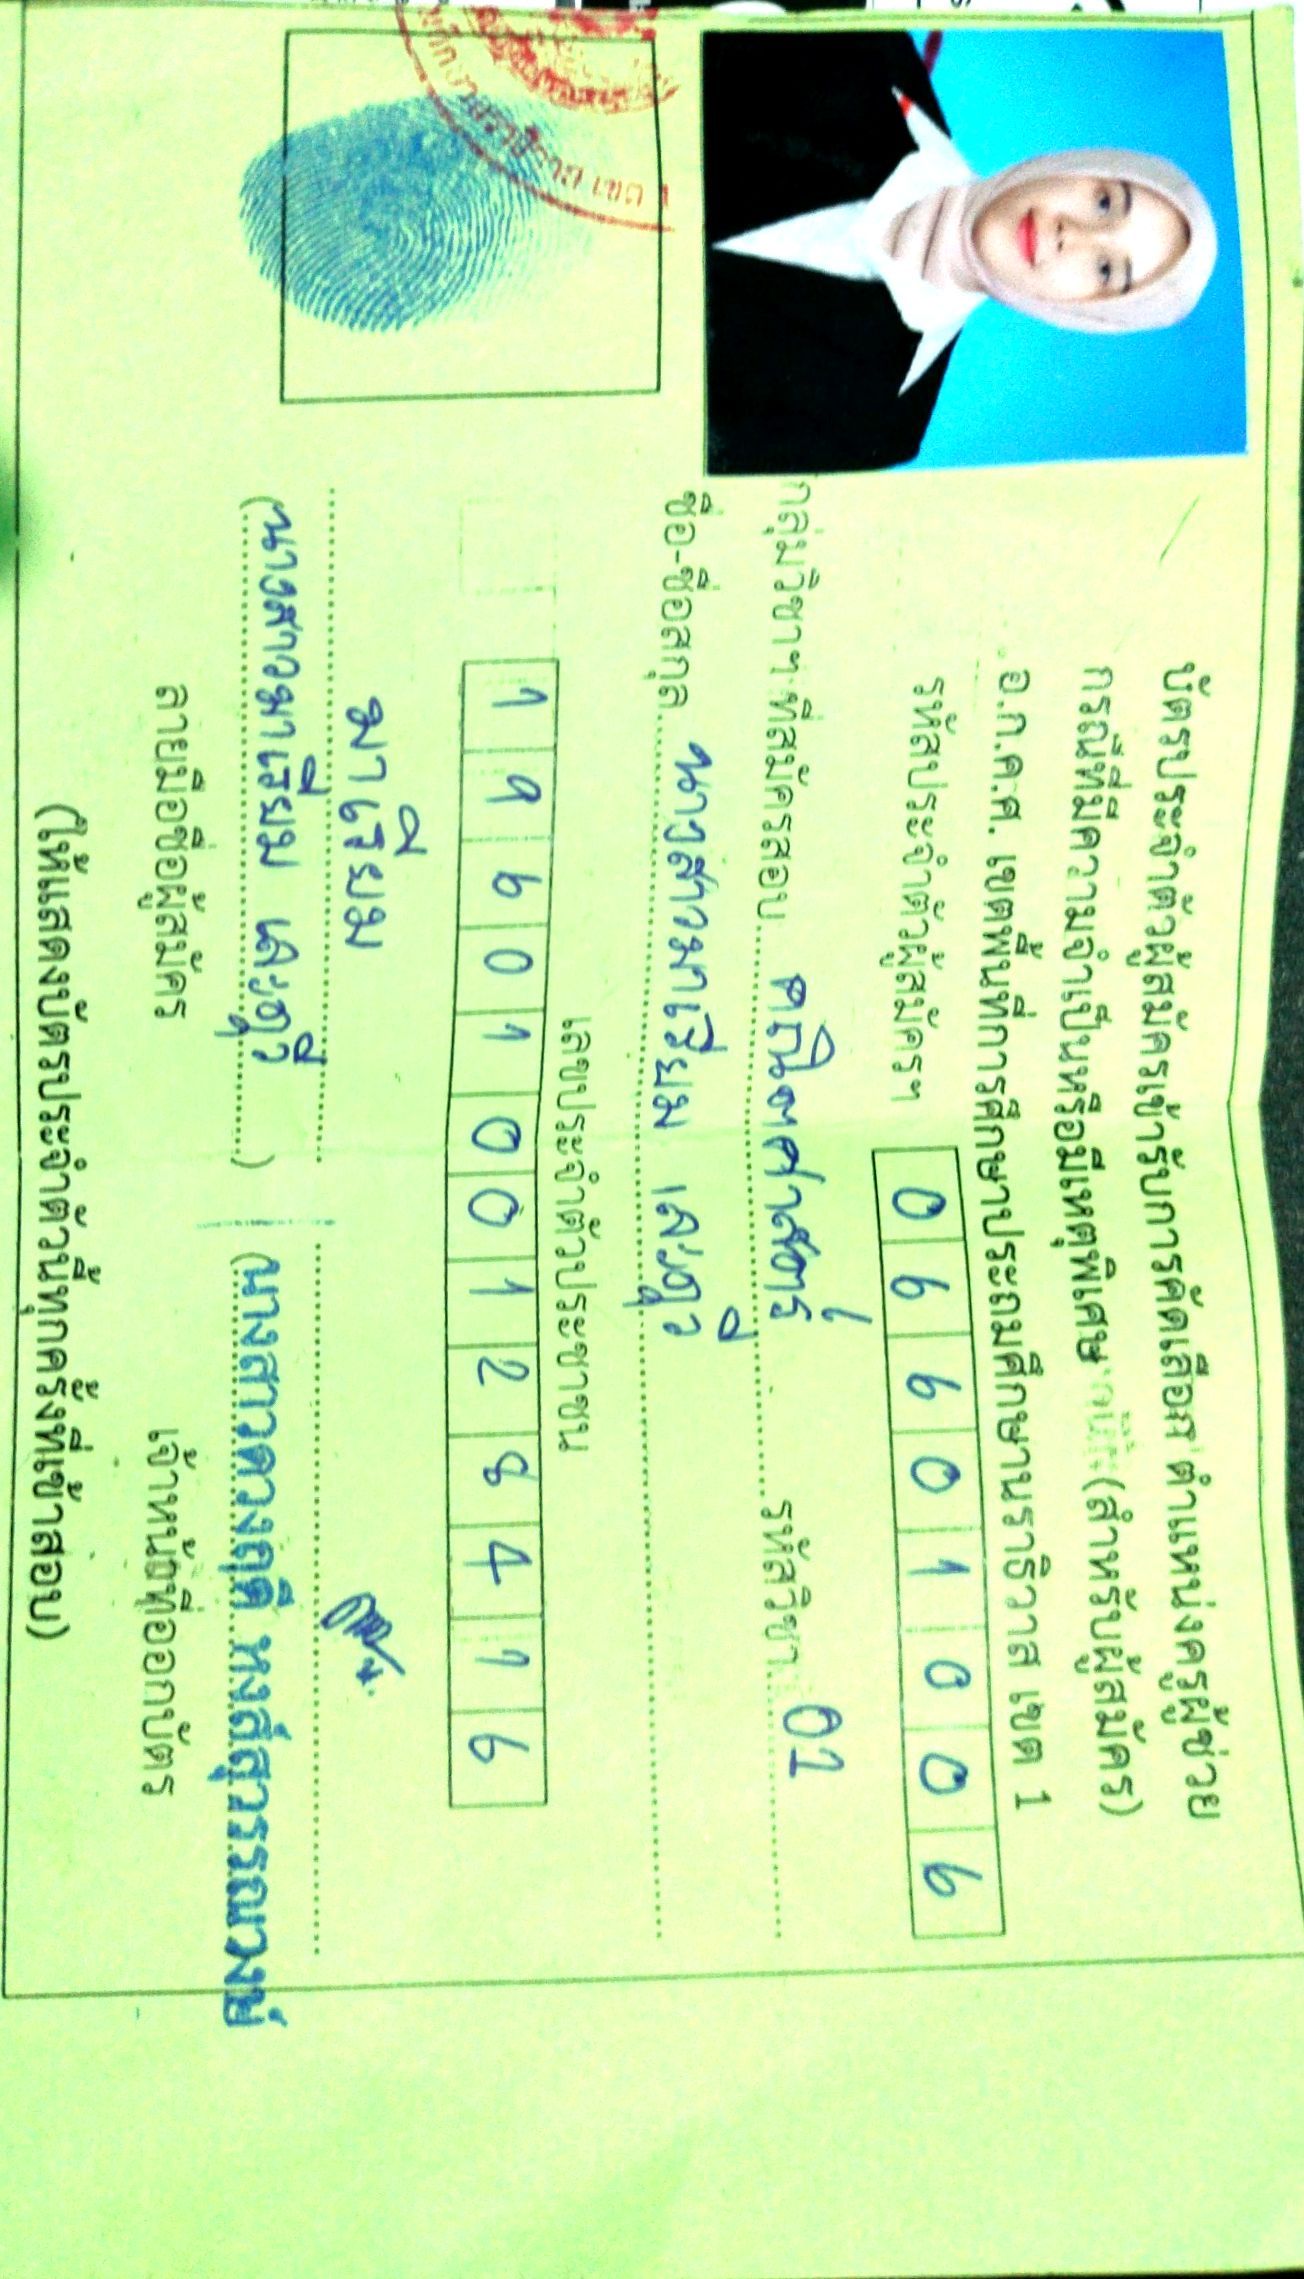 บัตรประจำตัวผู้สมัครเข้ารับการคัดเลือกฯ ตำแหน่งครูผู้ช่วย
กรณีที่มีความจำเป็นหรือมีเหตุพิเศษ (สำหรับผู้สมัคร)
อ.ก.ค.ศ. เขตพื้นที่การศึกษาประถมศึกษานราธิวาส เขต 1
รหัสประจำตัวผู้สมัครฯ 0 6 6 0 1 0 0 6
กลุ่มวิชาฯ ที่สมัครสอบ คณิตศาสตร์ รหัสวิชา 02
ชื่อ-ชื่อสกุล นางสาวมาเรียม
เลขประจำตัวประชาชน
1 9 6 0 1 0 0 1 2 8 4 1 6
มาเรียม
(นางสาวมาเรียม )
(นางสาวดวงฤดี หงส์สุวรรณวงษ์
ลายมือชื่อผู้สมัคร
เจ้าหน้าที่ออกบัตร
(ให้แสดงบัตรประจำตัวนี้ทุกครั้งที่เข้าสอบ)